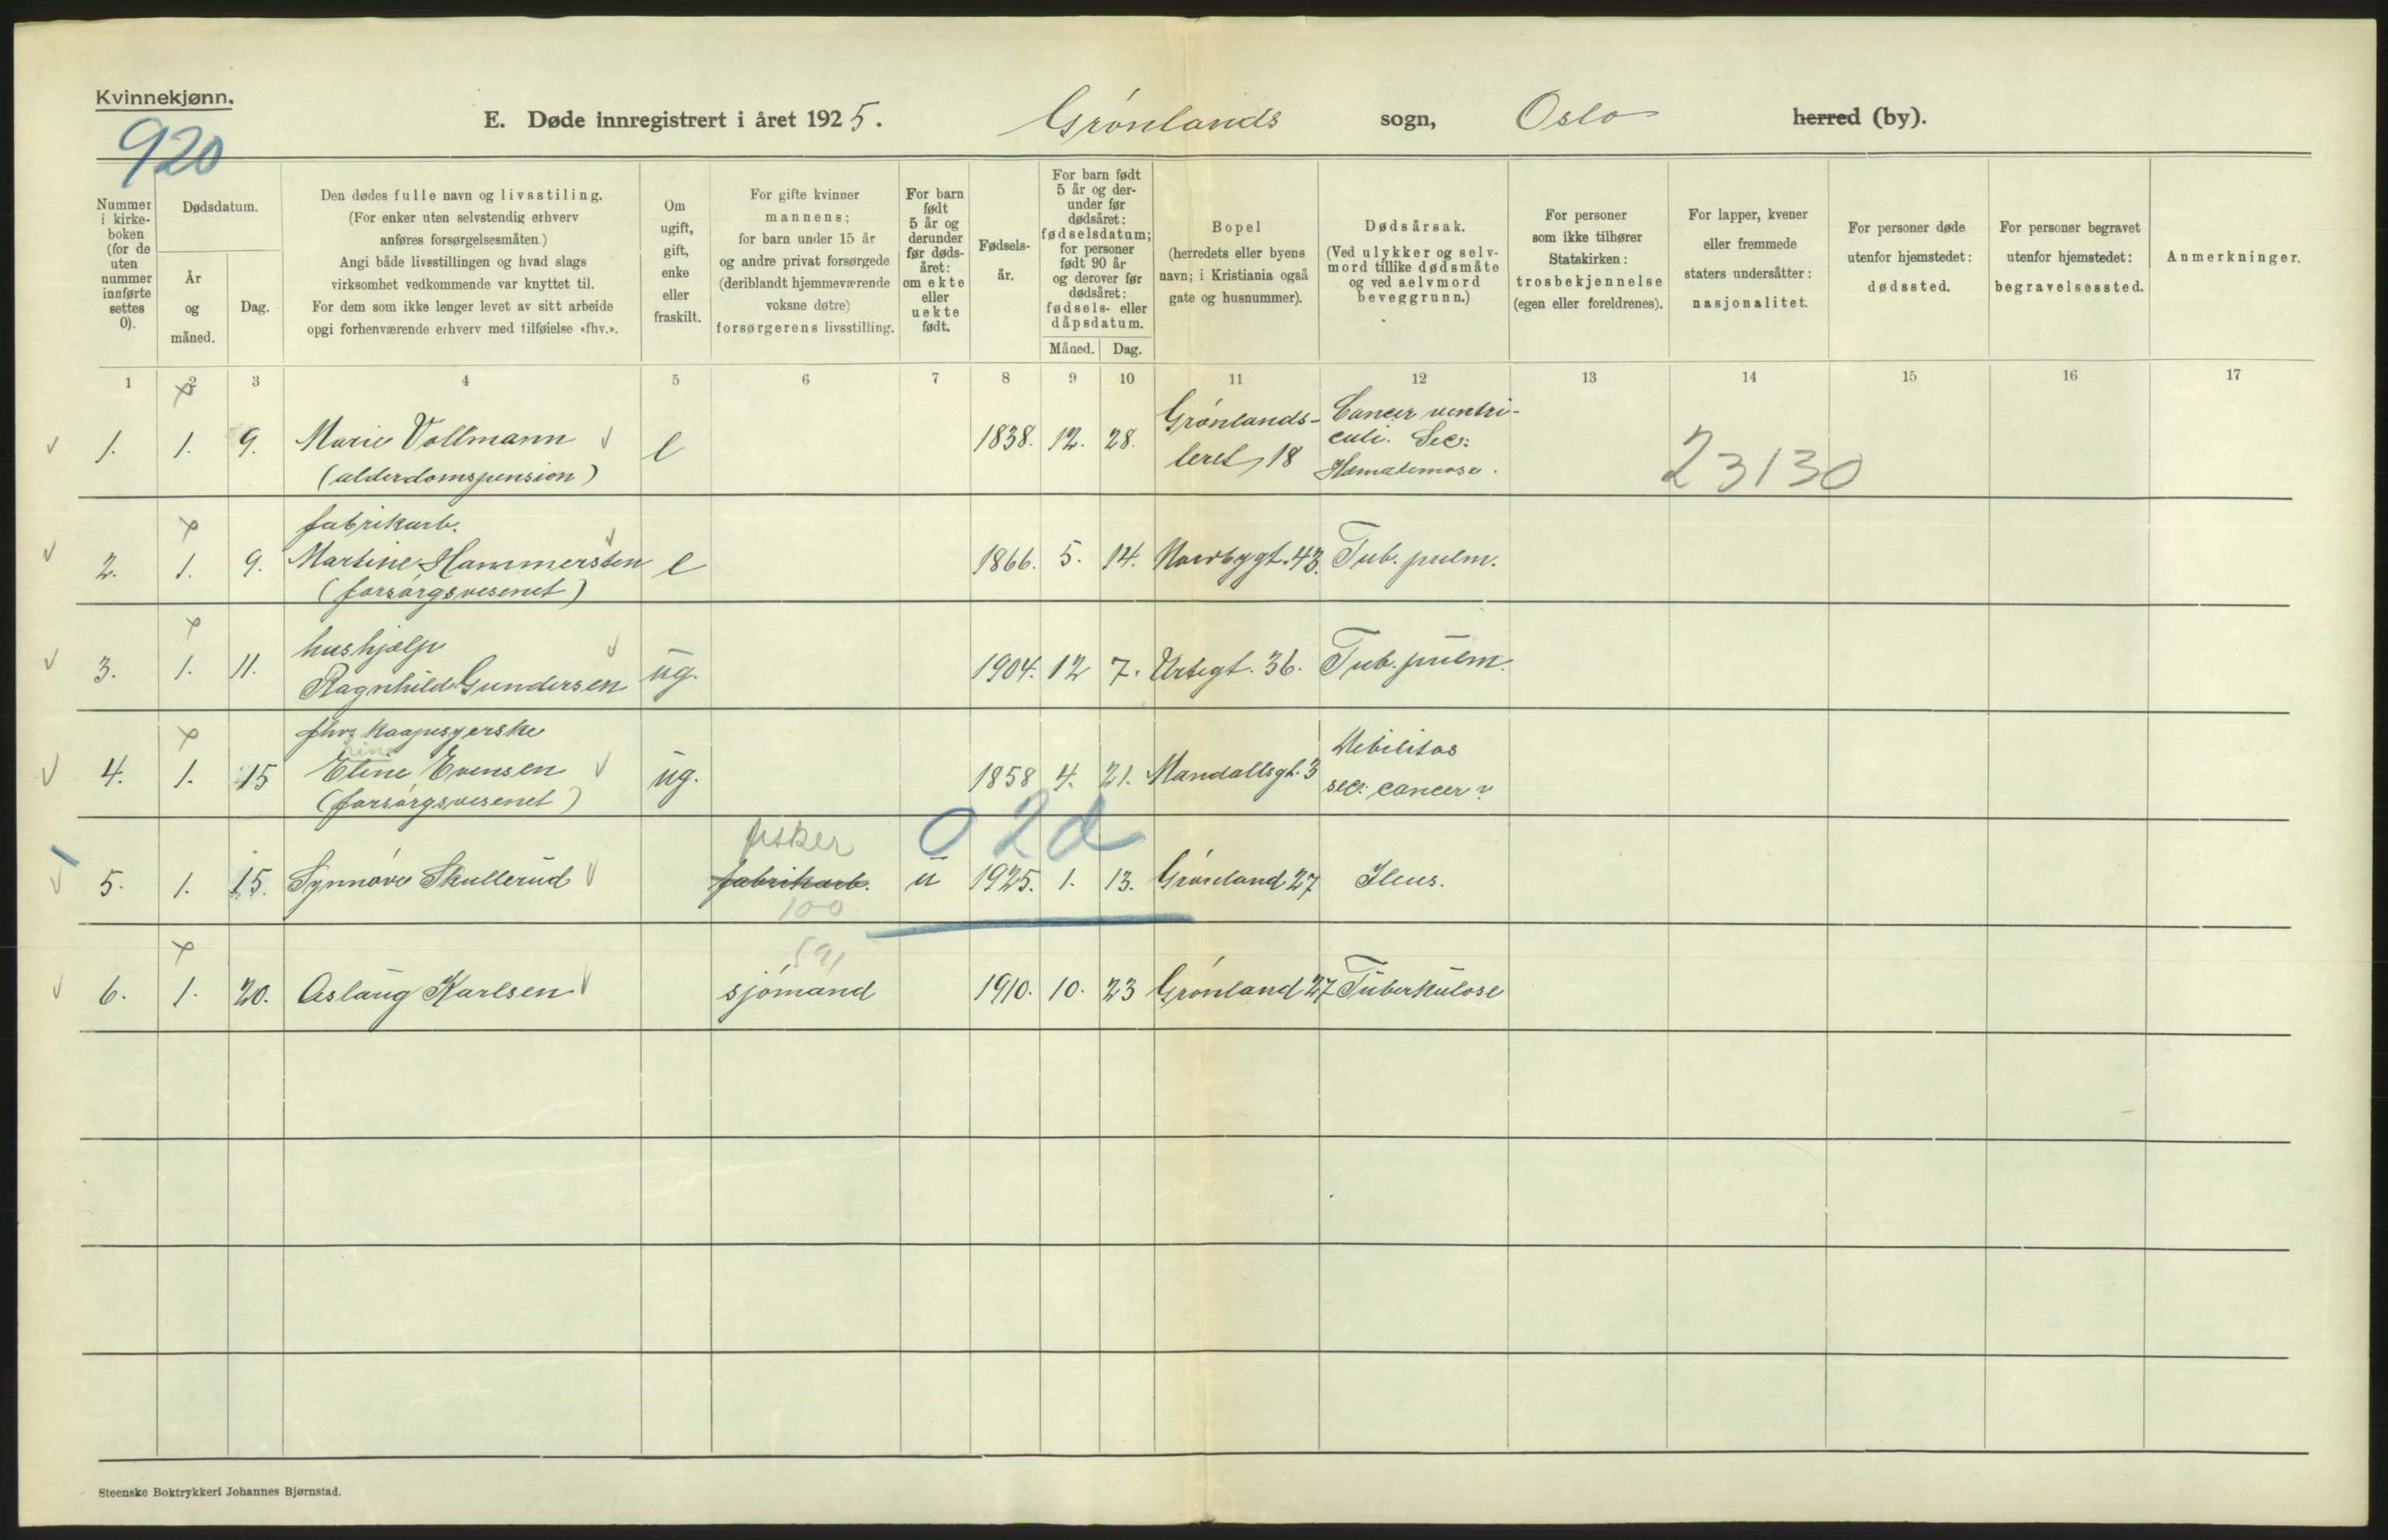 Kvinnekjønn.
920
E. Døde innregistrert i året 1925. Grønlands sogn, Oslo herred (by).
Nummer i kirke-boken (for de uten nummer innførte settes 0).
Dødsdatum.
År og måned.
Dag.
Den dødes fulle navn og livsstiling.
(For enker uten selvstendig erhverv
anføres forsørgelsesmåten.)
Angi både livsstillingen og hvad slags
virksomhet vedkommende var knyttet til.
For dem som ikke lenger levet av sitt arbeide
opgi forhenværende erhverv med tilføielse «fhv.».
Om
ugift,
gift,
enke
eller
fraskilt.
For gifte kvinner
mannens;
for barn under 15 år
og andre privat forsørgede
(deriblandt hjemmeværende
voksne døtre)
forsørgerens livsstilling.
For barn
født
5 år og
derunder
før døds-
året:
om ekte
eller
uekte
født.
Fødsels-
år.
For barn født
5 år og der-
under før
dødsåret:
fødselsdatum;
for personer
født 90 år
og derover før
dødsåret:
fødsels- eller
dåpsdatum.
Måned. Dag.
Bopel
(herredets eller byens
navn; i Kristiania også
gate og husnummer).
Dødsårsak.
(Ved ulykker og selv-
mord tillike dødsmåte
og ved selvmord
beveggrunn.)
For personer
som ikke tilhører
Statskirken:
trosbekjennelse
(egen eller foreldrenes).
For lapper, kvener
eller fremmede
staters undersåtter:
nasjonalitet.
For personer døde
utenfor hjemstedet:
dødssted.
For personer begravet
utenfor hjemstedet:
begravelsessted.
Anmerkninger.
1 2 3 4 5 6 7 8 9 10 11 12 13 14 15 16 17
1. 1. 9. Marie Vollmann e 1838. 12. 28. Grønlands- Cancer ventri-
(alderdomspension) leret 18 culi. Sec:
Hæmatemese.
23130
fabrikarb.
2. 1. 9. Martine Hammersten e 1866. 5. 14. Nordbygt. 43. Tub. pulm.
(forsørgsvesenet)
hushjælp
3. 1. 11. Ragnhild Gundersen ug. 1904. 12 7. Urtegt. 36. Tub. pulm.
fhv. kaapesyerske
4. 1. 15 Eline Evensen ug. 1858 4. 21. Mandallsgt. 3 Debilitas
(forsørgsvesenet) sec. cancer?
fisker 02d
5. 1. 15. Synnøve Skullerud fabrikarb. u 1925. 1. 13. Grønland 27 Ileus.
100
591
6. 1. 20. Aslaug Karlsen sjømand 1910. 10. 23 Grønland 27 Tuberkulose
Steenske Boktrykkeri Johannes Bjørnstad.